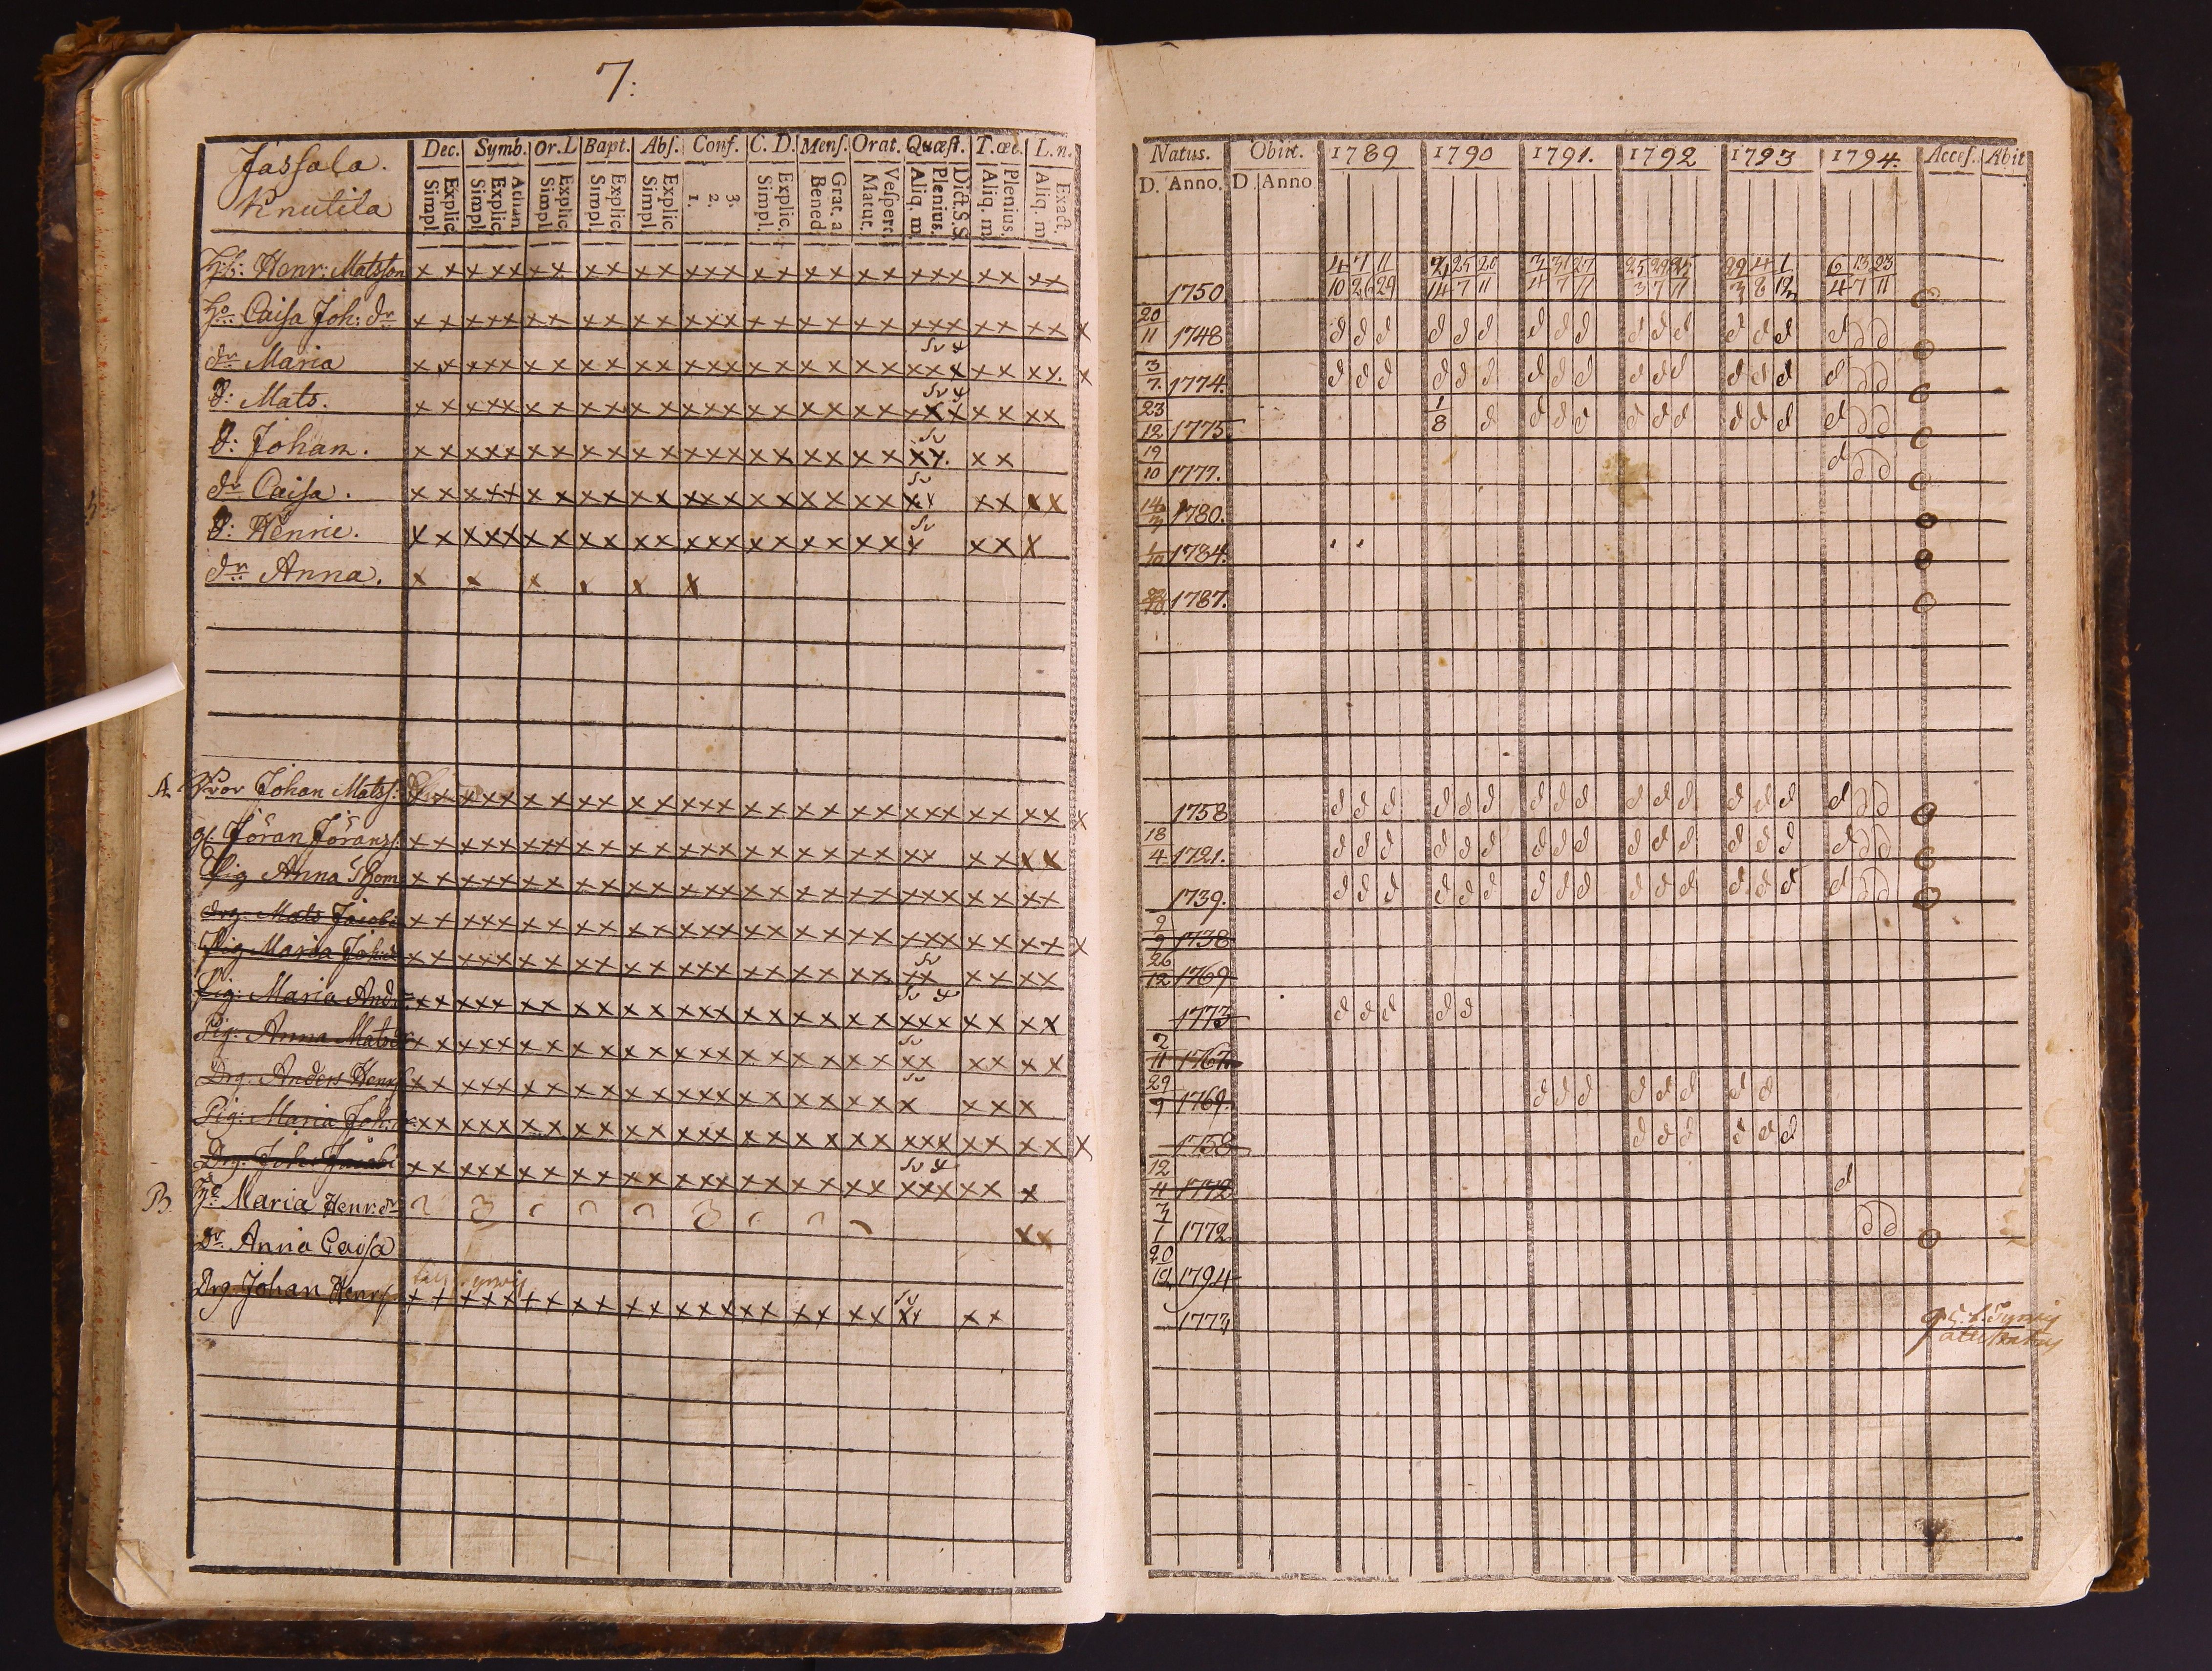 7.
Jassala.
Knutila
Dec. Symb. Or. L Bapt. Abs. Conf. C. D. Mens. Orat. Quæst. T. œc. L. n.
Explic. Simpl. Athan. Explic. Simpl. Explic. Simpl. Explic. Simpl. Explic. Simpl. 3. 2. 1. Explic. Simpl. Grat. a Bened. Vespert. Matut. Dict. S. S. Plenius. Aliq. m. Plenius. Aliq. m. Exact. Aliq. m
Henr: Matsson
Caisa Joh: dr
dr Maria
S: Mats.
S: Johan.
dr Caisa.
S: Henric.
dr Anna.
A Bror Johan Matss:
Jöran Jöranss.
Pig Anna Thom
Drg: Mats Jacobs
Pig Maria Johd
Pig: Maria Andr
Pig: Anna Matsdr
Drg: Anders Henrs
Pig: Maria Joh: dr
Drg. Joh: Jacobs
B. Maria Henr: dr
Dr Anna Caisa
Drg Johan Henrs.
Natus. Obiit. 1789 1790 1791. 1792 1793 1794. Acces. Abit
D. Anno. D. Anno
1750 4/10 7/26 11/29 25/7 20/11 3/4 31/7 27/11 25/3 29/7 25/11 29/3 4/8 1/12 6/4 13/7 23/11
20/11 1748
3/7 1774.
23/12 1775 1/8
19/10 1777.
1780.
1/10 1784.
1787.
1758
18/4 1721.
1739.
9/9 1738
26/12 1769
1773
2/11 1767
29/9 1769.
1758
12/11 1772
3/1 1772
20/12 1794
1773